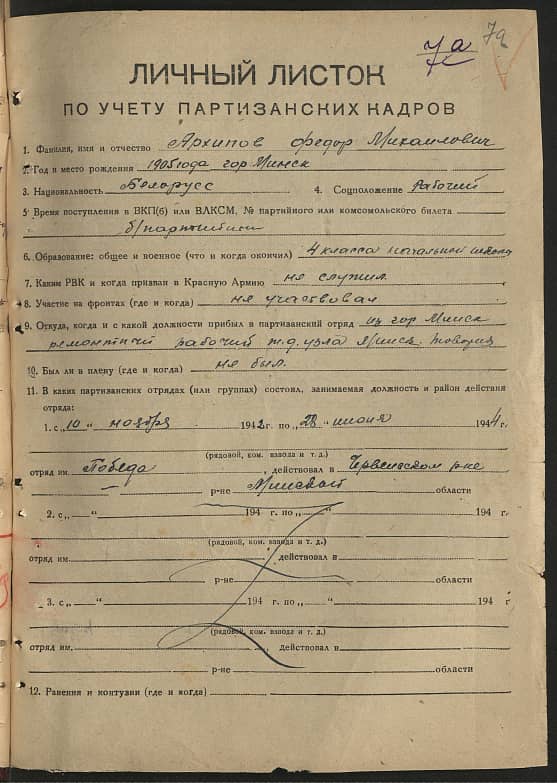 7а 7а
ЛИЧНЫЙ ЛИСТОК
ПО УЧЕТУ ПАРТИЗАНСКИХ КАДРОВ
1. Фамилия, имя и отчество Архипов Федор Михайлович
2. Год и место рождения 1905 года гор Минск
3. Национальность Белорусс 4. Соцположение Рабочий
5 Время поступления в ВКП(б) или ВЛКСМ, № партийного или комсомольского билета
б/партийный
6. Образование: общее и военное (что и когда окончил) 4 класса начальной школы
7. Каким РВК и когда призван в Красную Армию не служил
8. Участие на фронтах (где и когда) не участвовал
9. Откуда, когда и с какой должности прибыл в партизанский отряд из гор Минск
рабочий ж.д. узла Минск.
10. Был ли в плену (где и когда) не был.
11. В каких партизанских отрядах (или группах) состоял, занимаемая должность и район действия
отряда:
1. с „10 “ ноября 1942 г. по „28 “ июня 1944 г.
(рядовой, ком. взвода и т. д.)
отряд им. Победа , действовал в Червенском р-не
— р-не Минской области
2. с „ “ 194 г. по „ “ 194 г.
(рядовой, ком. взвода и т. д.)
отряд им. , действовал в
р-не области
3. с „ “ 194 г. по „ “ 194 г
(рядовой, ком. взвода и т. д.)
отряд им. , действовал в
р-не области
12. Ранения и контузии (где и когда)